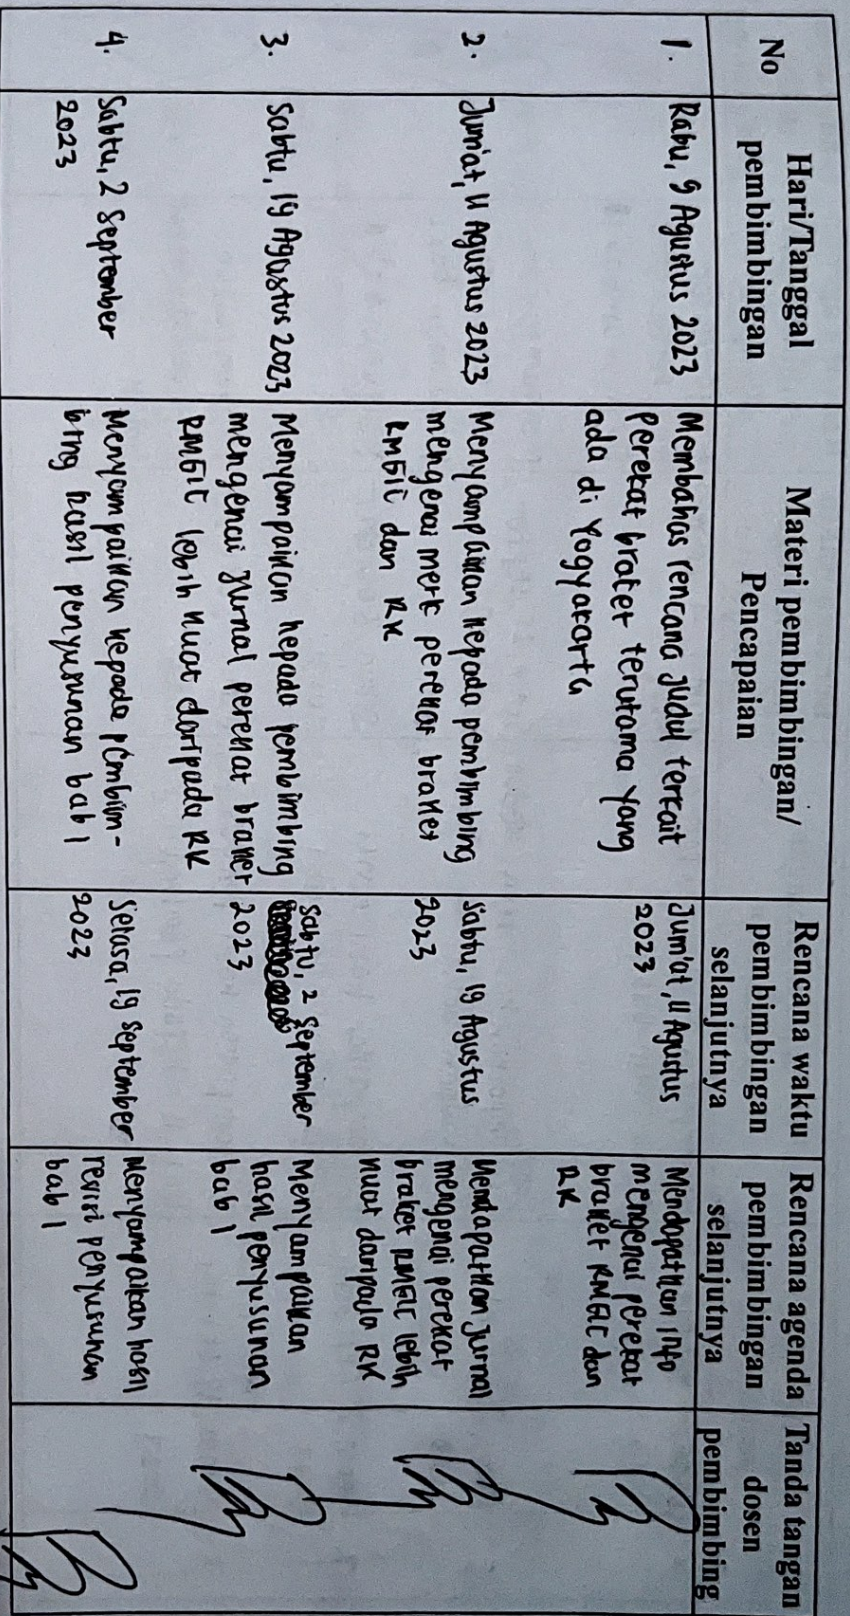 No
Hari/Tanggal
pembimbingan
Materi pembimbingan/
Pencapaian
Rencana waktu
pembimbingan
selanjutnya
Rencana agenda
pembimbingan
selanjutnya
Tanda tangan
dosen
pembimbing
1.
Rabu, 9 Agustus 2023
Membahas rencana judul terkait
perekat braket terutama yang
ada di Yogyakarta
Jum'at, 11 Agustus
2023
Mendapatkan info
mengenai perekat
braket RMGIC dan
RK
2.
Jum'at, 11 Agustus 2023
Menyampaikan kepada pembimbing
mengenai merk perekat braket
RMGIC dan RK
Sabtu, 19 Agustus
2023
Mendapatkan jurnal
mengenai perekat
braket RMGIC lebih
kuat daripada RK
3.
Sabtu, 19 Agustus 2023
Menyampaikan kepada pembimbing
mengenai jurnal perekat braket
RMGIC lebih kuat daripada RK
Sabtu, 2 September
2023
Menyampaikan
hasil penyusunan
bab 1
4.
Sabtu, 2 September
2023
Menyampaikan kepada pembim-
bing hasil penyusunan bab 1
Selasa, 19 September
2023
Menyampaikan hasil
revisi penyusunan
bab 1